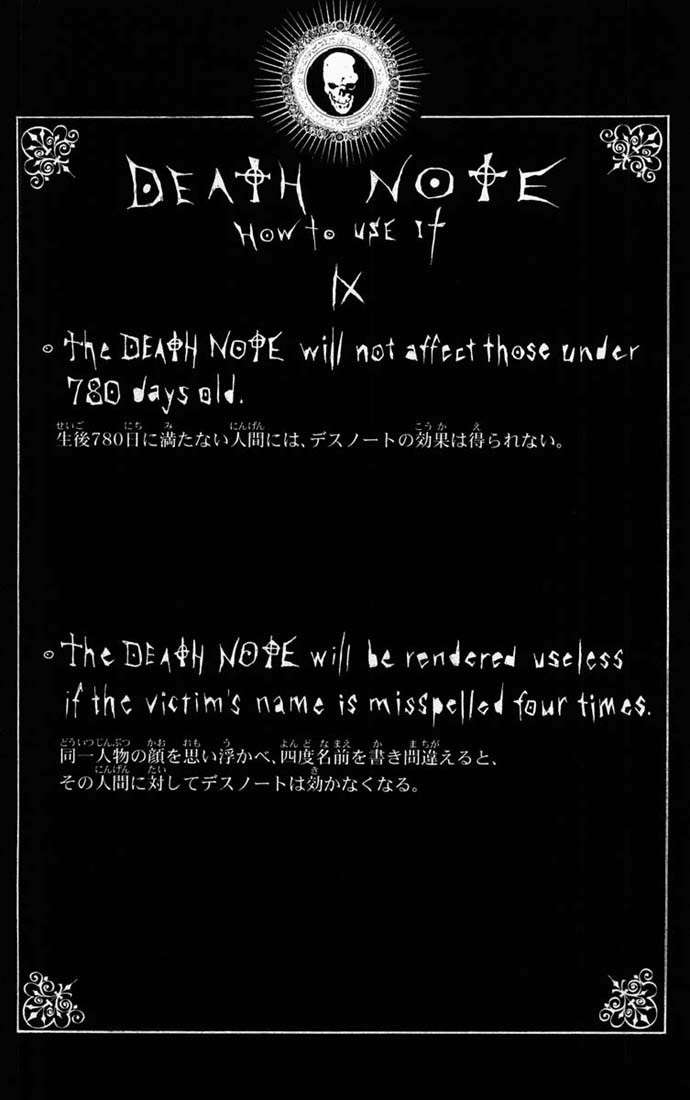 DEATH NOTE
HOW to USE It
IX
The DEATH NOTE will not affect those under
780 days old.
生後780日に満たない人間には、デスノートの効果は得られない。
The DEATH NOTE will be rendered useless
if the victim's name is misspelled four times.
同一人物の顔を思い浮かべ、四度名前を書き間違えると、
その人間に対してデスノートは効かなくなる。